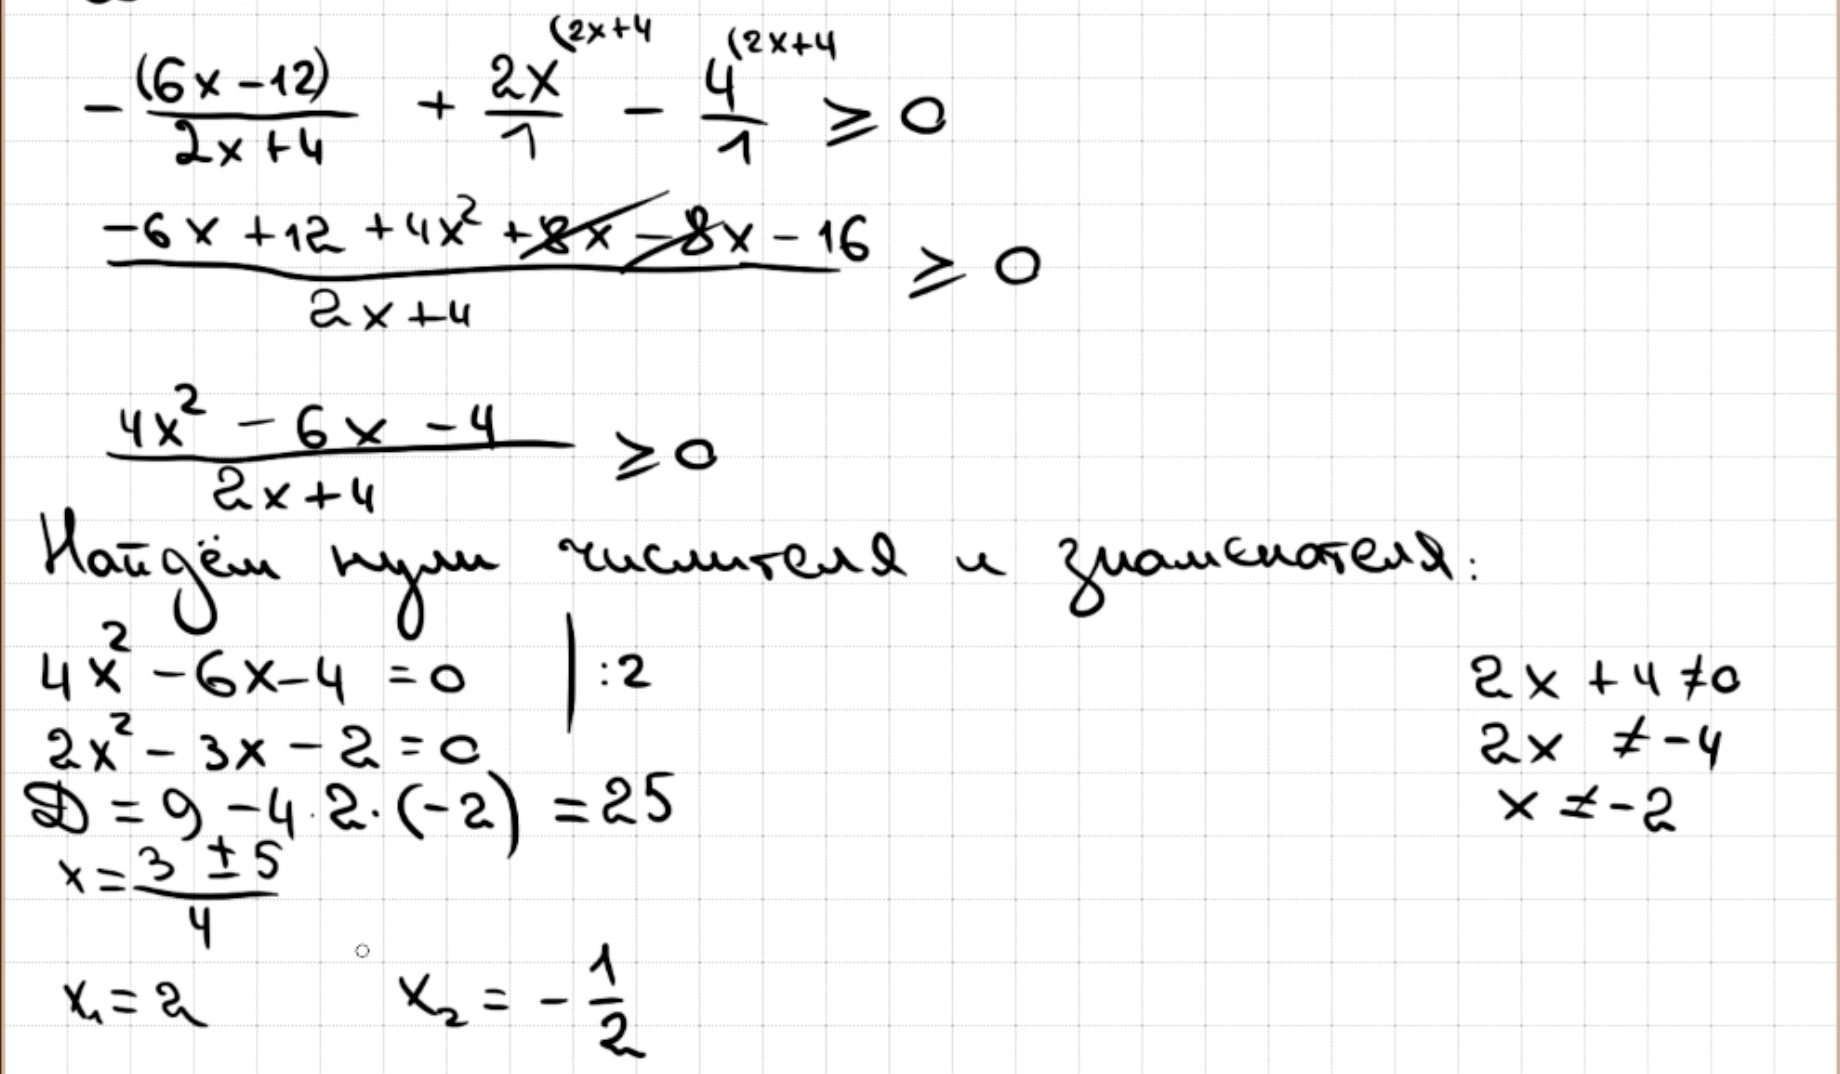 -(6x-12)/(2x+4) + 2x^(2x+4/1 - 4^(2x+4/1 ≥ 0
(-6x+12+4x²+8x-8x-16)/(2x+4) ≥ 0
(4x²-6x-4)/(2x+4) ≥ 0
Найдём нули числителя и знаменателя:
4x²-6x-4=0 | :2
2x+4≠0
2x²-3x-2=0
2x ≠-4
D=9-4·2·(-2)=25
x≠-2
x=(3±5)/4
x₁=2 x₂=-1/2